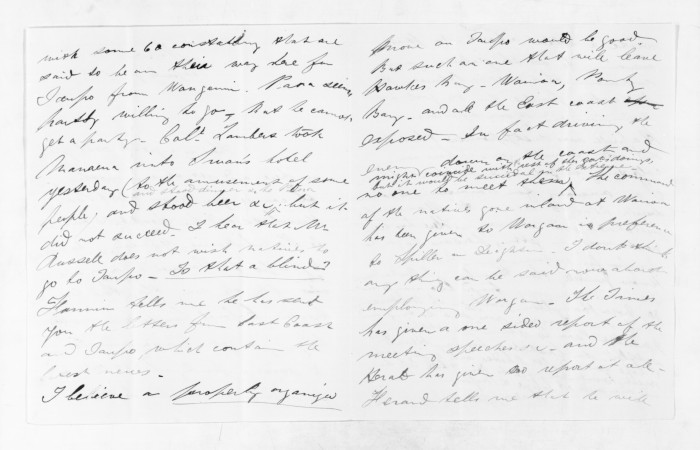 with some 60 constabulary that are
said to be on their way here for
Taupo from Wanganui. Paora seems
partly willing to go, but he cannot
get a party. Capt. Lambers took
Manaena into Swan's hotel
yesterday (to the amusement of some
people, and stood beer &c; but it
did not succeed. I hear that Mr
Russell does not wish natives to
go to Taupo – Is that a blind?
tells me he has sent
you the letters from East Coast
and Taupo which contain the
latest news –
I believe a properly organized
move on Taupo would be good
But such an one that will leave
Hawkes Bay – Wairoa, Poverty
Bay – and all the East coast
exposed – In fact driving the
enemy down on the coast and
might coincide with rest of the
no one to meet them. The command
of the natives gone inland at Wairoa
has been given to Worgan in preference
to Spiller or Deighton. I don't think
any thing can be said now about
employing Worgan. The Times
has given a one sided report of the
meeting speeches &c – and the
Herald has given no report at all –
tells me that he will